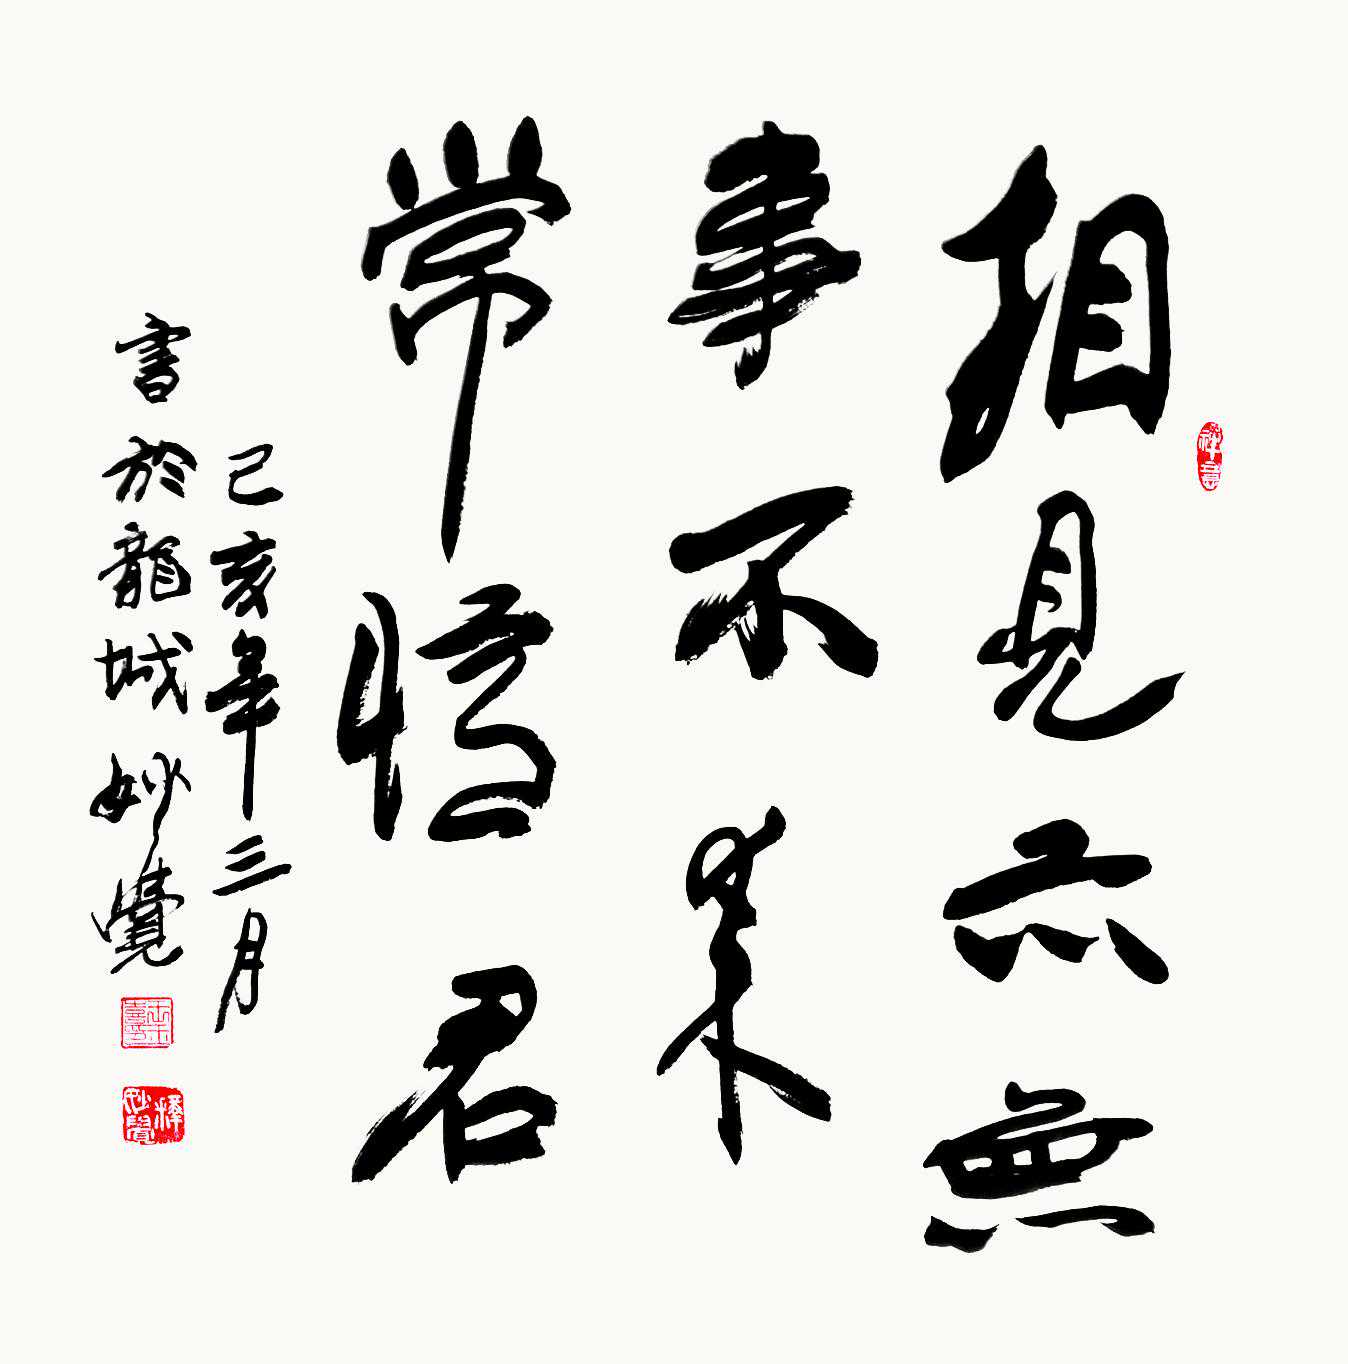 相見亦無
事不來
常憶君
己亥年三月
書於龍城妙覺
禅意
妙覺